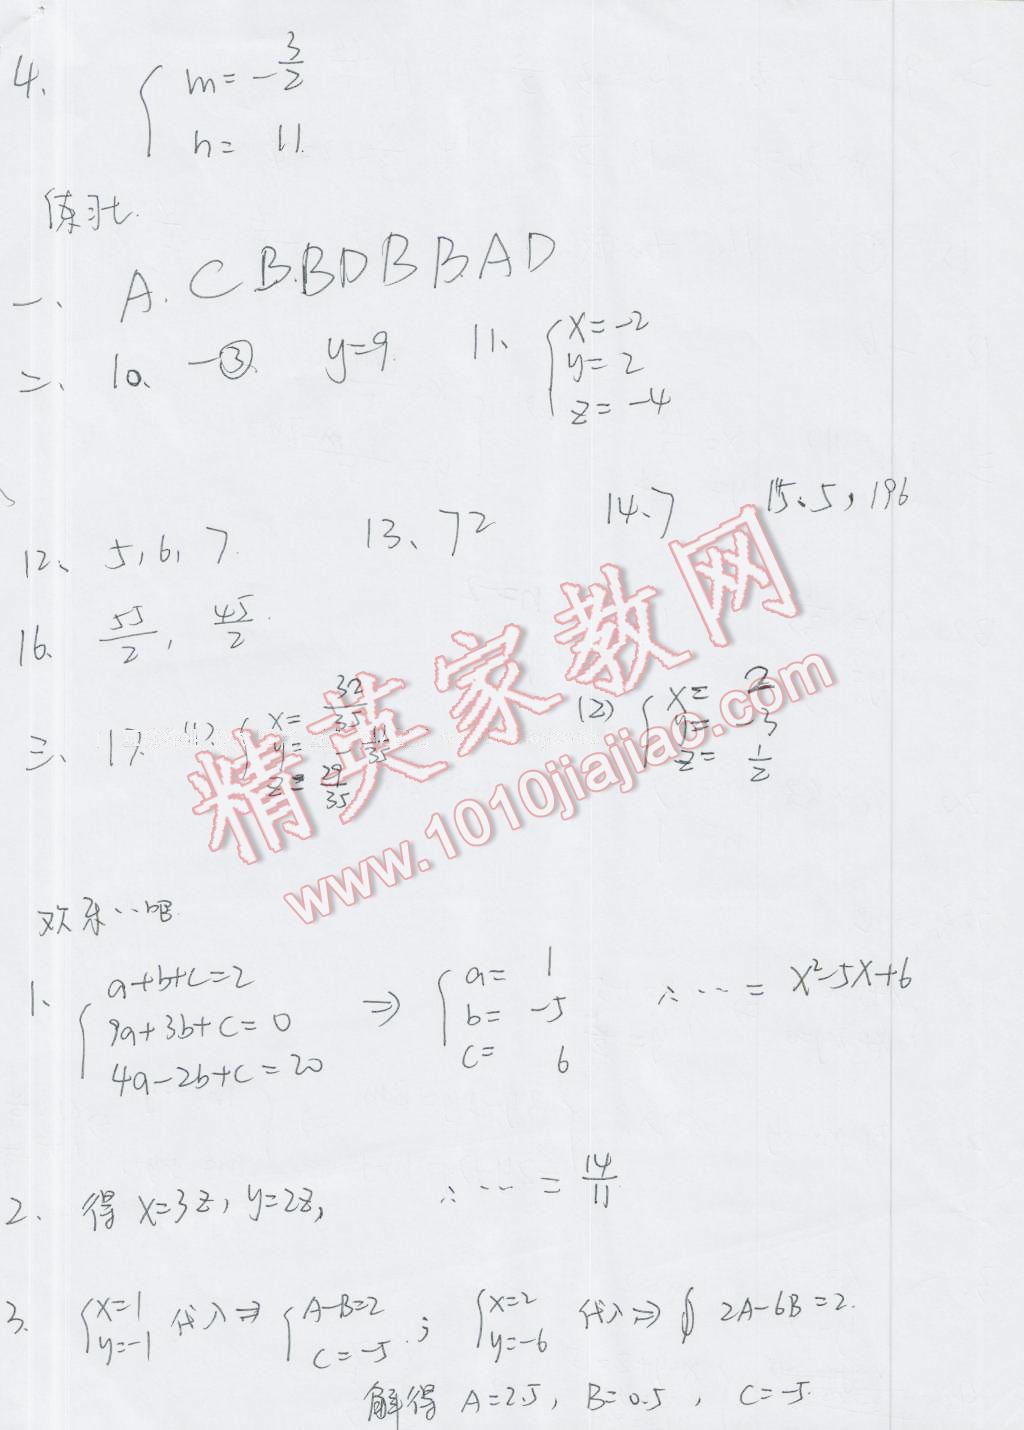 4、 { m = -3/2
n = 11
练习七.
一、 A. C B. B D B B. A D
二、 10、 -③. y=9. 11、 { x=-2
y=2
z=-4
12、 5, 6, 7. 13、72 14、7 15、5, 196
16、 55/2, 45/2.
三、 17. (1) { x= 32/35
y= -11/35
z= 29/35
(2) { x= 2
y= -3
z= 1/2
精英家教网
www.1010jiajiao.com
欢乐…吧
1、 { a+b+c=2
9a+3b+c=0
4a-2b+c=20
⇒ { a= 1
b= -5
c= 6
∴ … = x²-5x+6
2、 得 x=3z, y=2z, ∴ … = 14/11
3、 { x=1
y=-1
代入⇒ { A-B=2
C=-5
; { x=2
y=-6
代入⇒ 2A-6B=2.
解得 A=2.5, B=0.5, C=-5.